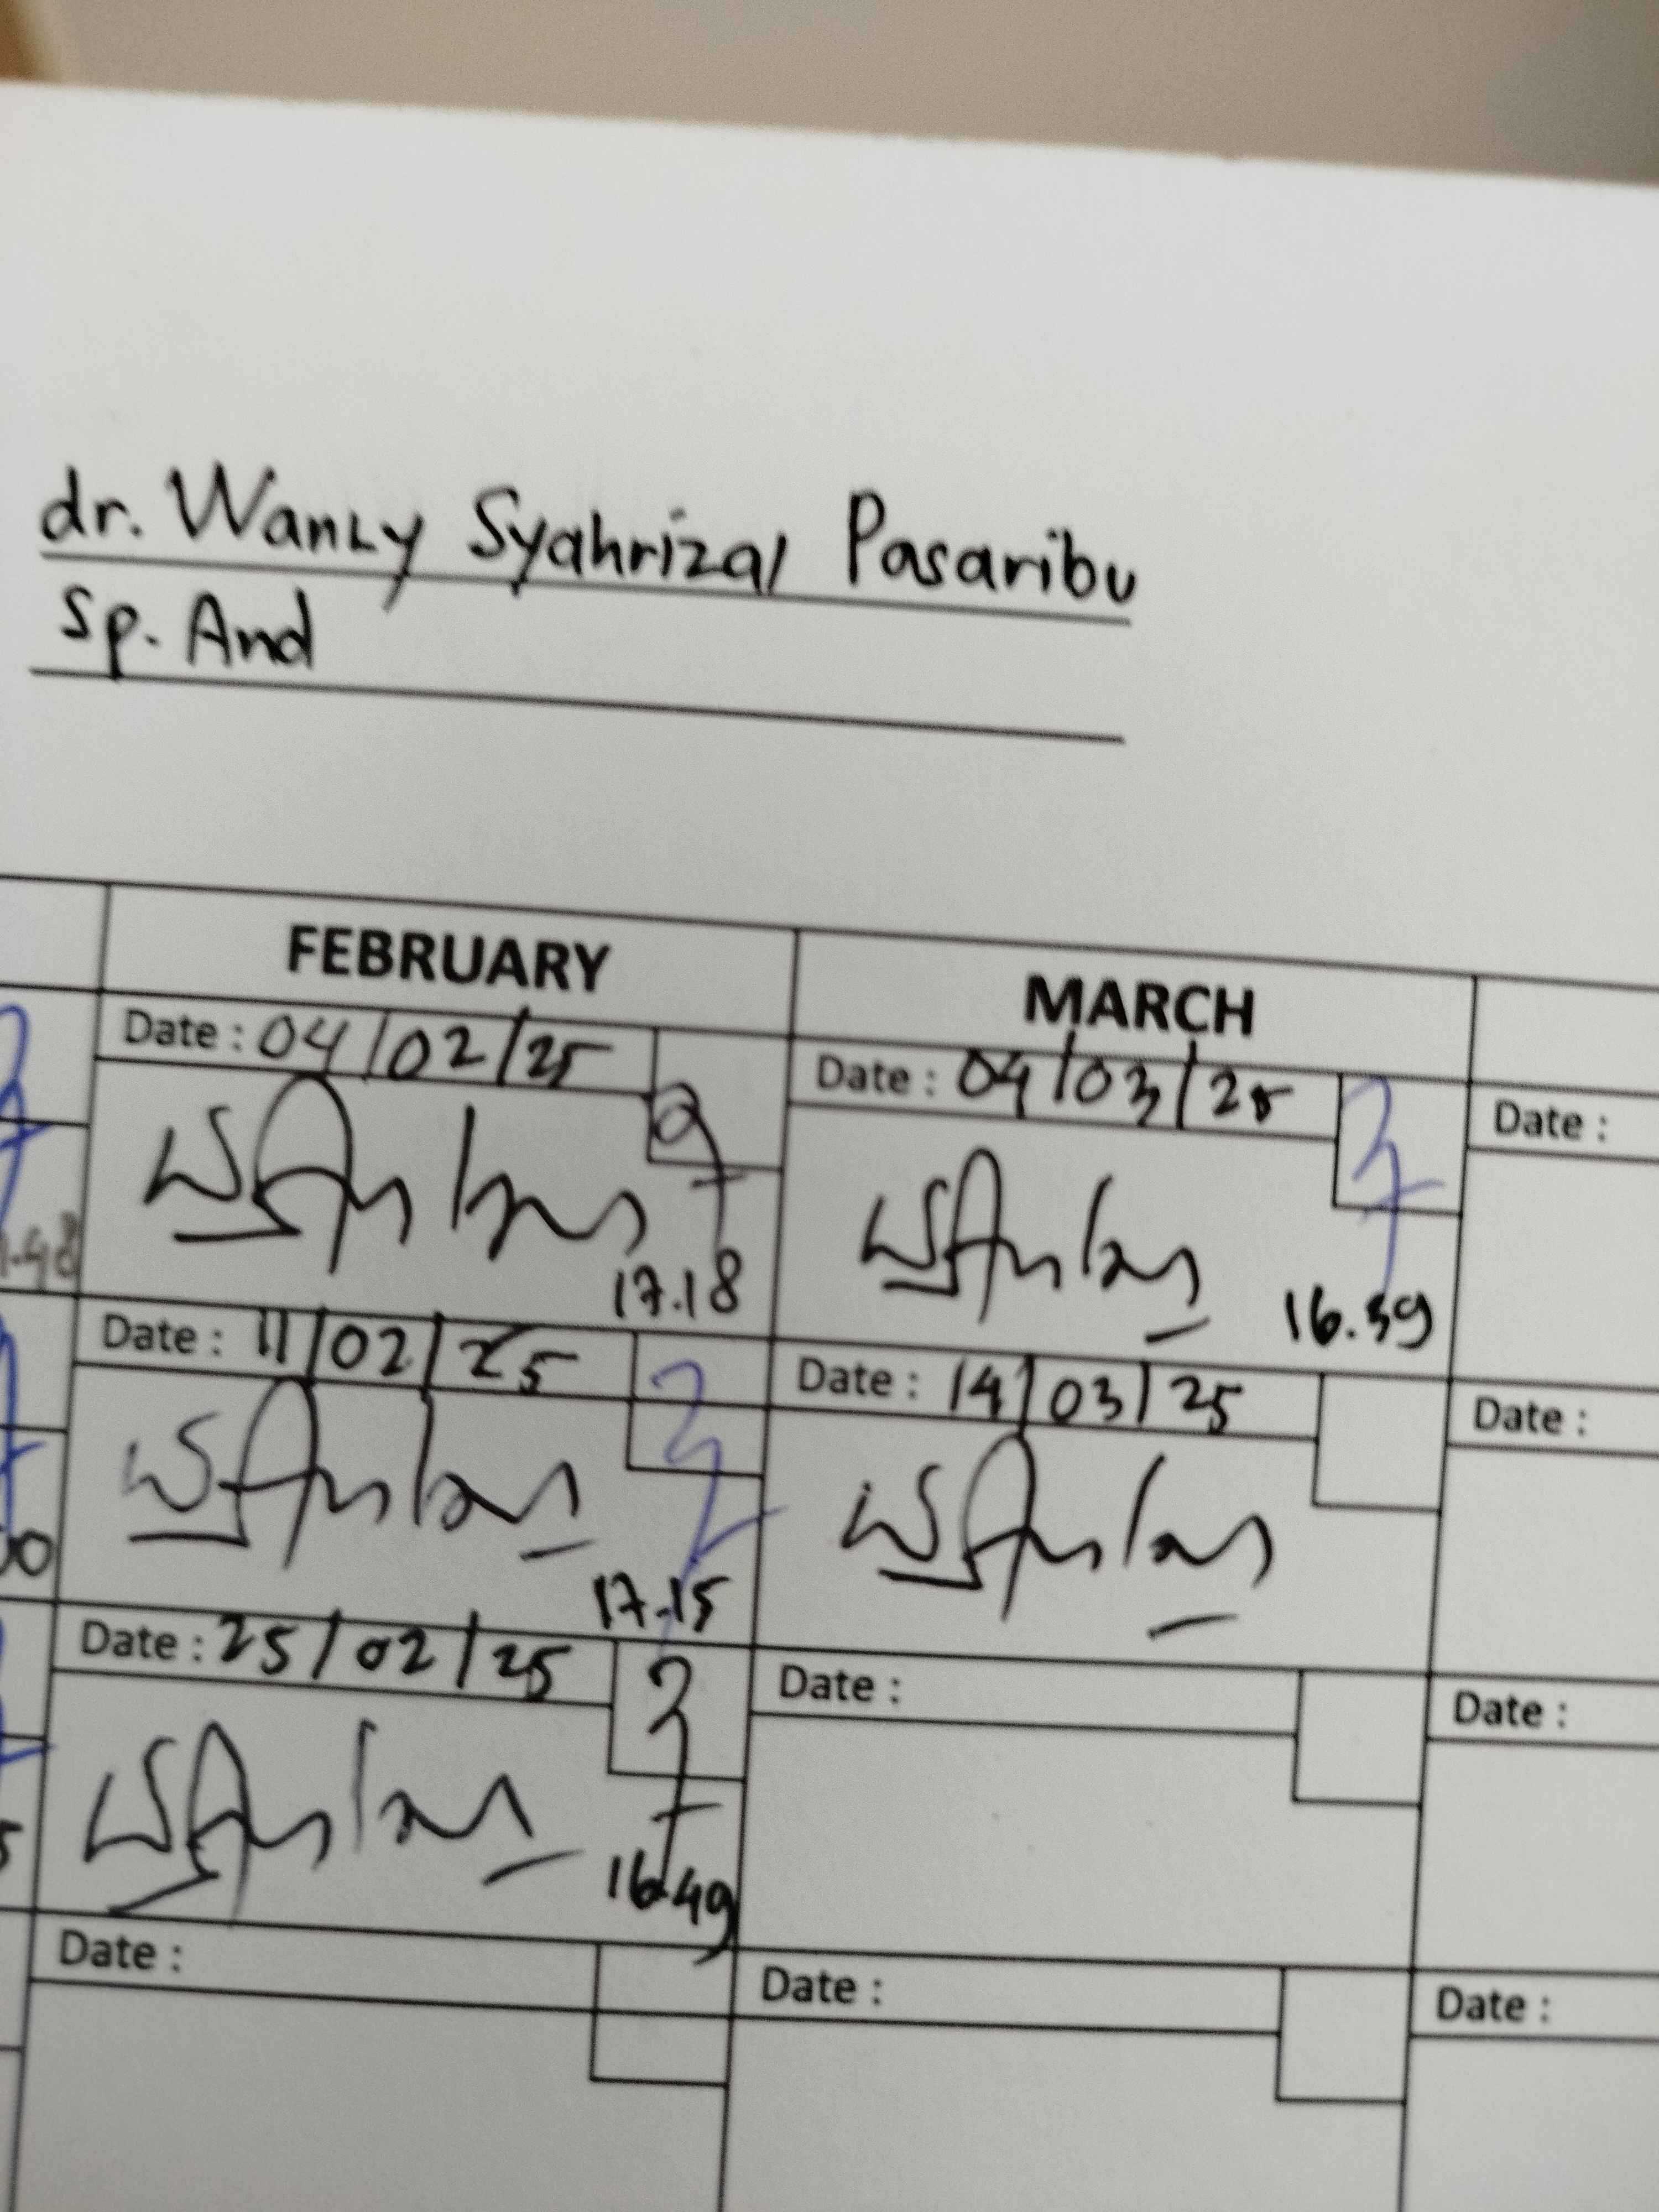 dr. Wanly Syahrizal Pasaribu
Sp. And
FEBRUARY
MARCH
Date : 04/02/25
Date : 04/03/25
Date :
17.18
16.39
Date : 11/02/25
Date : 14/03/25
Date :
17.15
Date : 25/02/25
Date :
Date :
16.49
Date :
Date :
Date :